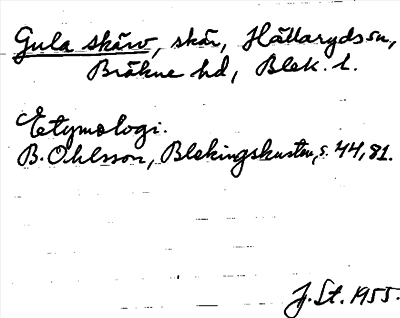 Gula skärv, skär, Hällaryds sn,
Bräkne hd, Blek. l.
Etymologi.
B. Ohlsson, Blekingskusten, s. 44, 81.
J. St. 1955.